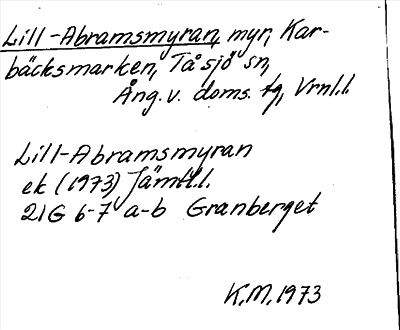 Lill-Abramsmyran, myr, Kar-
bäcksmarken, Tåsjö sn,
Ång. v. doms. tg, Vrnl.l.
Lill-Abramsmyran
ek (1973) Jämtl.l.
21G 6-7 a-b Granberget
K.M. 1973